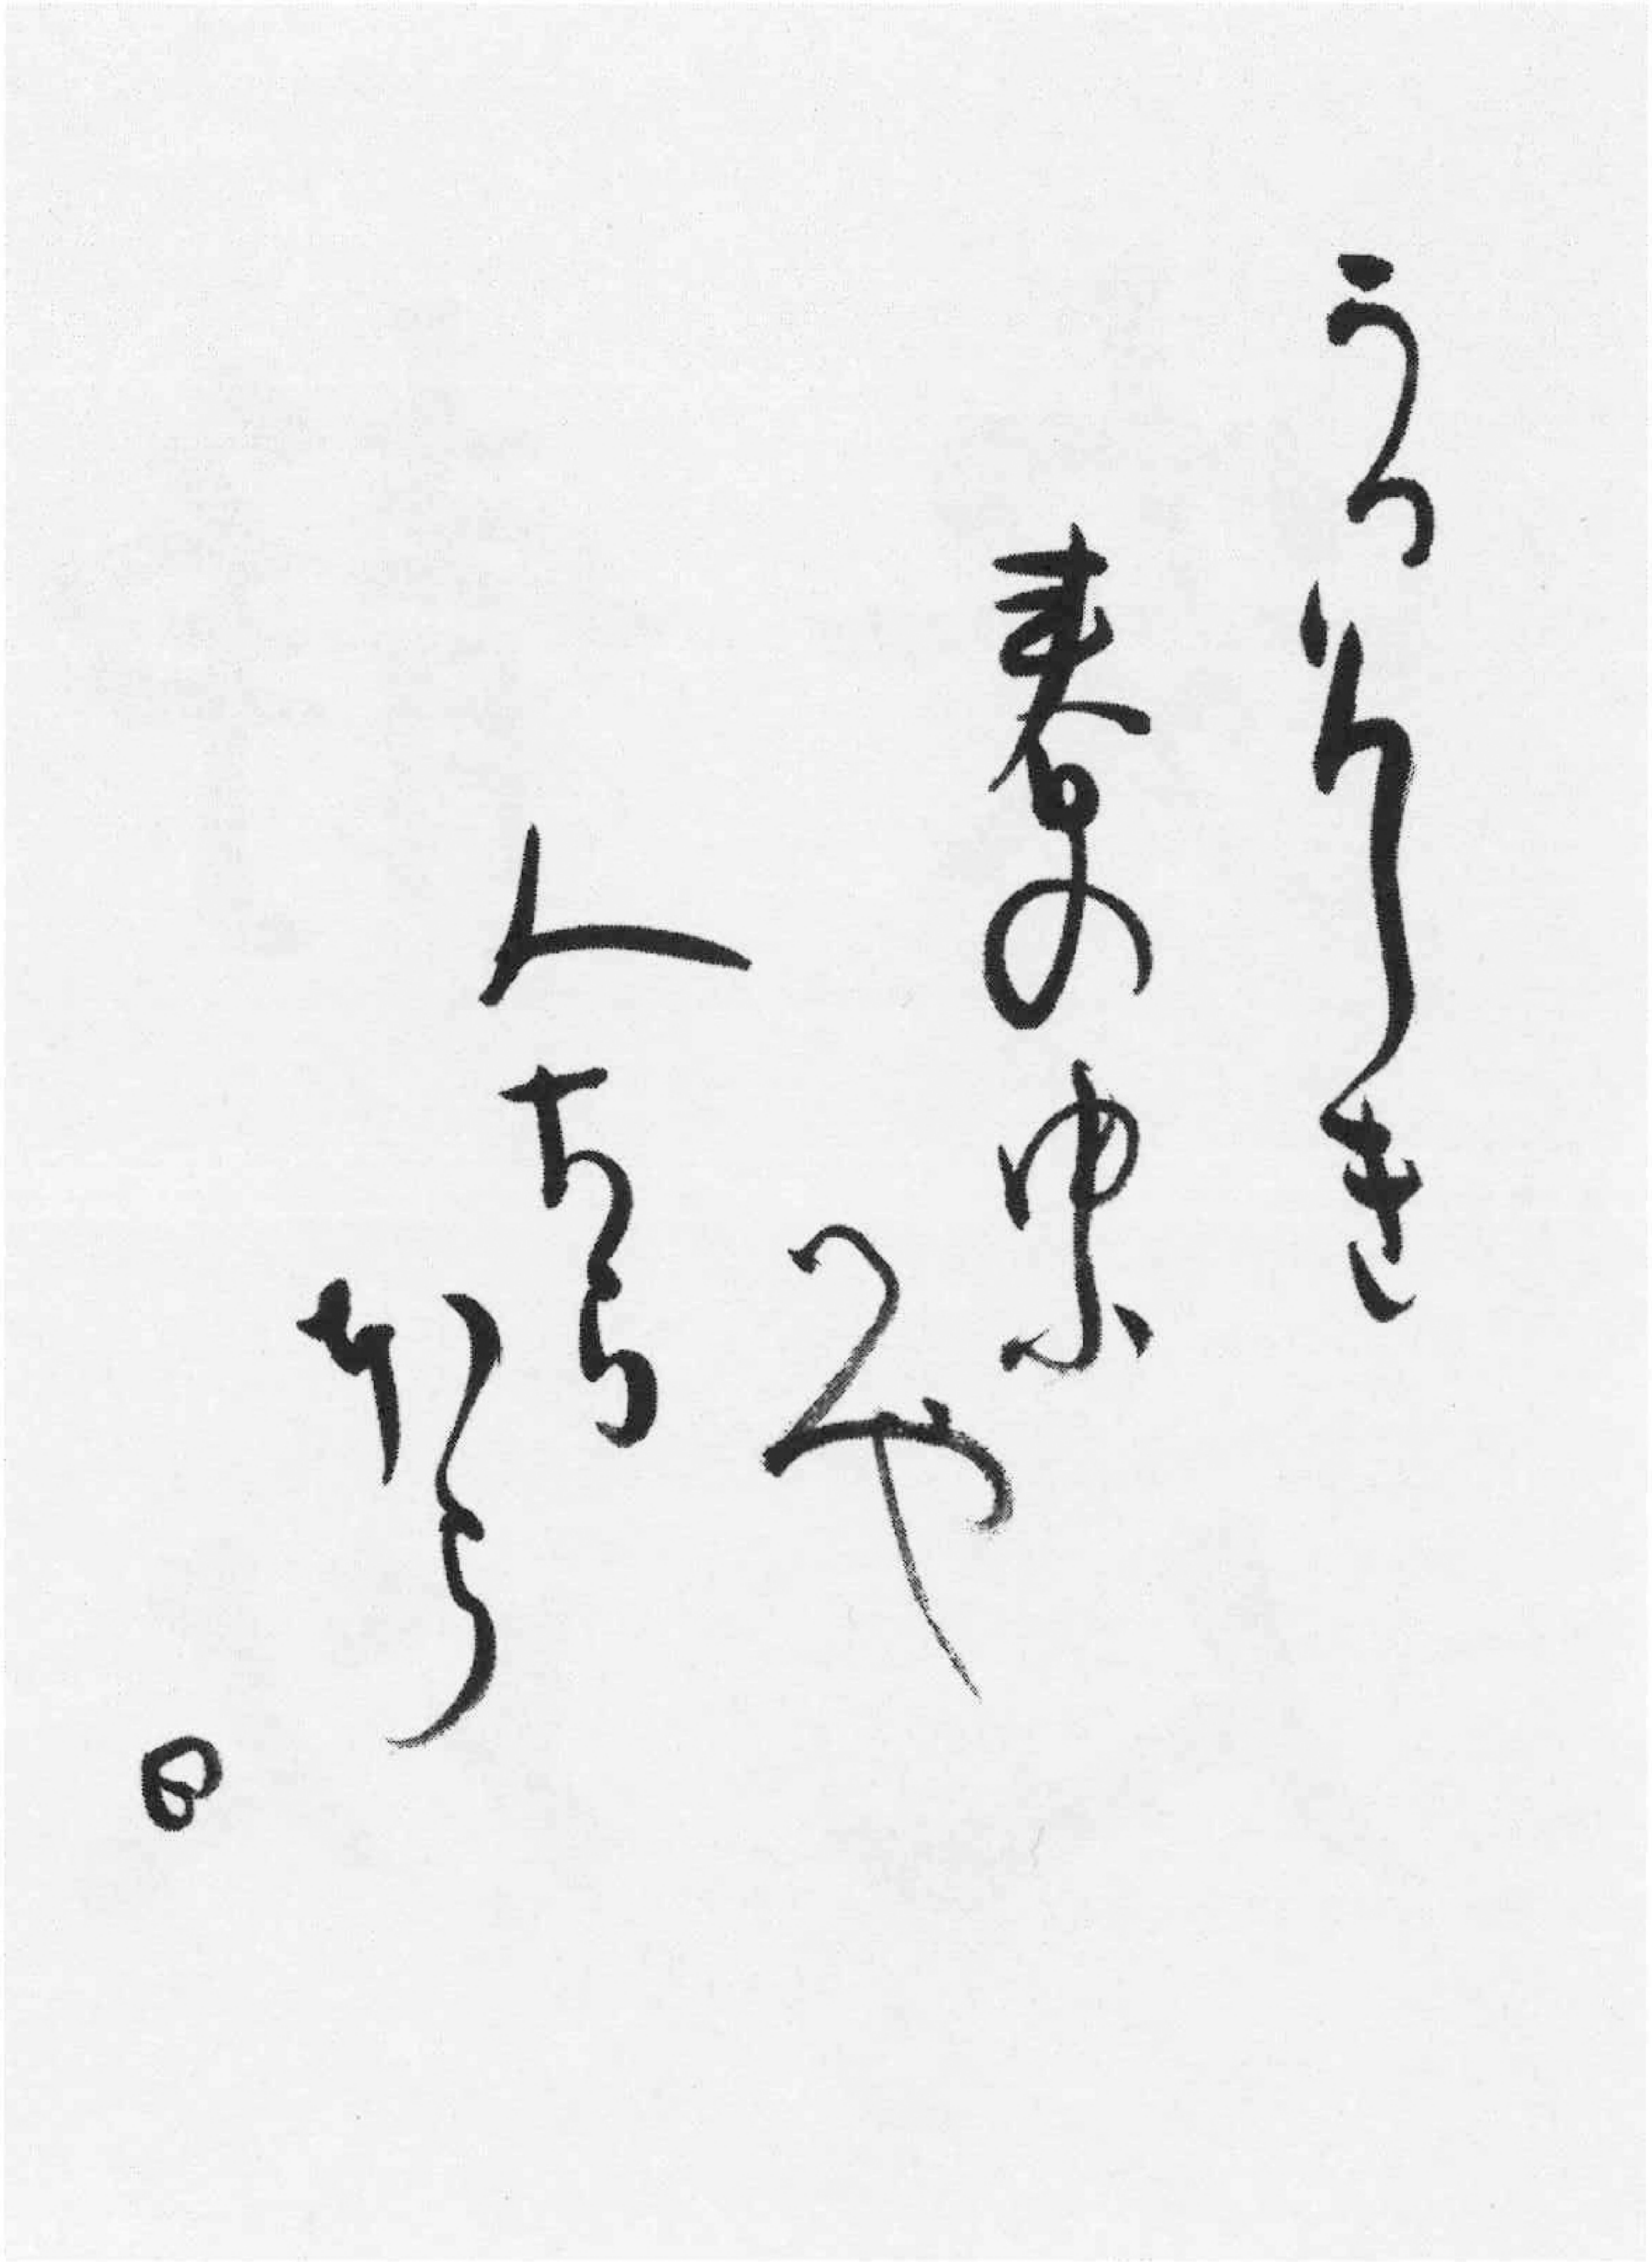 うつくしき
春のゆふ
へや
人ちら
ほら